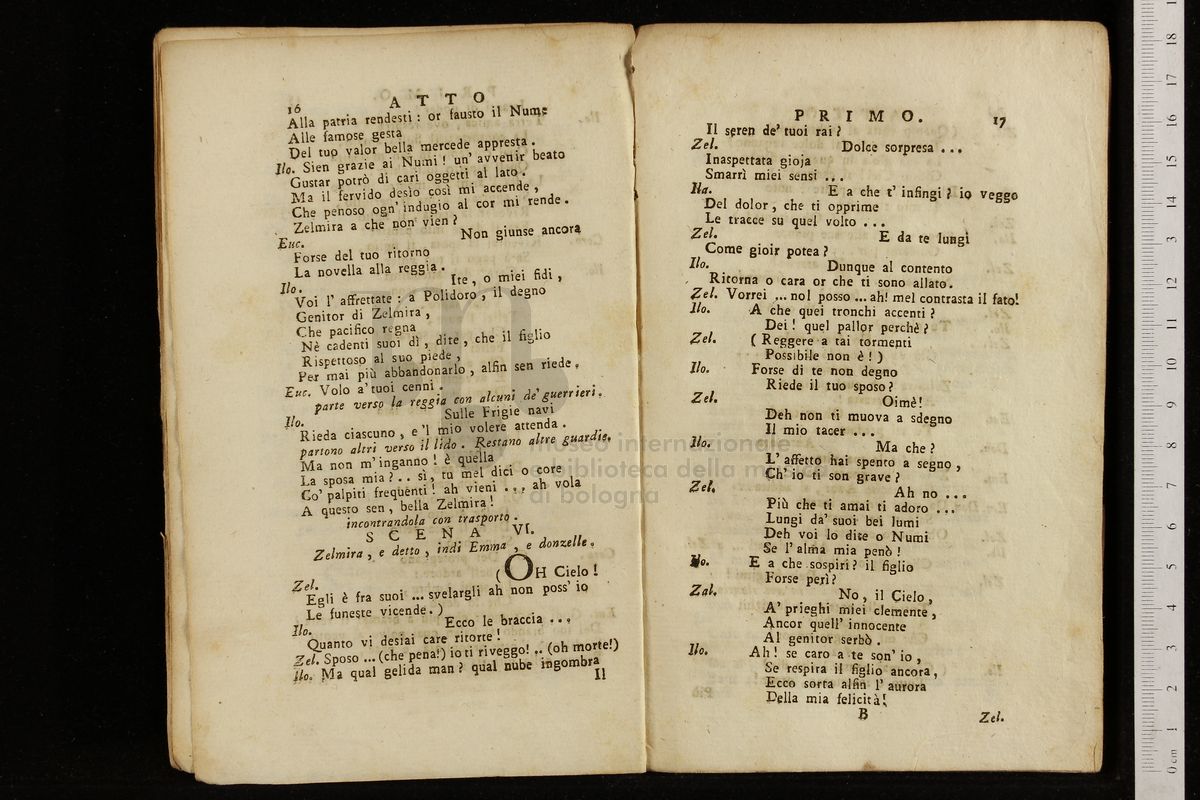 16 ATTO
Alla patria rendesti : or fausto il Nume
Alle famose gesta
Del tuo valor bella mercede appresta .
Ilo. Sien grazie ai Numi ! un' avvenir beato
Gustar potrò di cari oggetti al lato .
Ma il fervido desìo così mi accende ,
Che penoso ogn' indugio al cor mi rende .
Zelmira a che non vien ?
Euc. Non giunse ancora
Forse del tuo ritorno
La novella alla reggia .
Ilo. Ite , o miei fidi ,
Voi l' affrettate : a Polidoro , il degno
Genitor di Zelmira ,
Che pacifico regna
Nè cadenti suoi dì , dite , che il figlio
Rispettoso al suo piede ,
Per mai più abbandonarlo , alfin sen riede .
Euc. Volo a' tuoi cenni .
parte verso la reggia con alcuni de' guerrieri .
Ilo. Sulle Frigie navi
Rieda ciascuno , e 'l mio volere attenda .
partono altri verso il lido . Restano altre guardie .
Ma non m' inganno ! è quella
La sposa mia ? . . sì , tu mel dici o core
Co' palpiti frequenti ! ah vieni . . . ah vola
A questo sen , bella Zelmira !
incontrandola con trasporto .
SCENA VI.
Zelmira , e detto , indi Emma , e donzelle .
Zel. ( OH Cielo !
Egli è fra suoi ... svelargli ah non poss' io
Le funeste vicende . )
Ilo. Ecco le braccia ...
Quanto vi desiai care ritorte !
Zel. Sposo ... (che pena!) io ti riveggo! .. (oh morte!)
Ilo. Ma qual gelida man ? qual nube ingombra
Il
PRIMO. 17
Il seren de' tuoi rai ?
Zel. Dolce sorpresa ...
Inaspettata gioja
Smarrì miei sensi ...
Ilo. E a che t' infingi ? io veggo
Del dolor , che ti opprime
Le tracce su quel volto ...
Zel. E da te lungi
Come gioir potea ?
Ilo. Dunque al contento
Ritorna o cara or che ti sono allato .
Zel. Vorrei ... nol posso ... ah! mel contrasta il fato!
Ilo. A che quei tronchi accenti ?
Dei ! quel pallor perchè ?
Zel. ( Reggere a tai tormenti
Possibile non è ! )
Ilo. Forse di te non degno
Riede il tuo sposo ?
Zel. Oimè!
Deh non ti muova a sdegno
Il mio tacer ...
Ilo. Ma che ?
L' affetto hai spento a segno ,
Ch' io ti son grave ?
Zel. Ah no ...
Più che ti amai ti adoro ...
Lungi da' suoi bei lumi
Deh voi lo dite o Numi
Se l' alma mia penò !
Ilo. E a che sospiri ? il figlio
Forse perì ?
Zal. No , il Cielo ,
A' prieghi miei clemente ,
Ancor quell' innocente
Al genitor serbò .
Ilo. Ah ! se caro a te son' io ,
Se respira il figlio ancora ,
Ecco sorta alfin l' aurora
Della mia felicità !
B Zel.
museo internazionale
e biblioteca della musica
di bologna